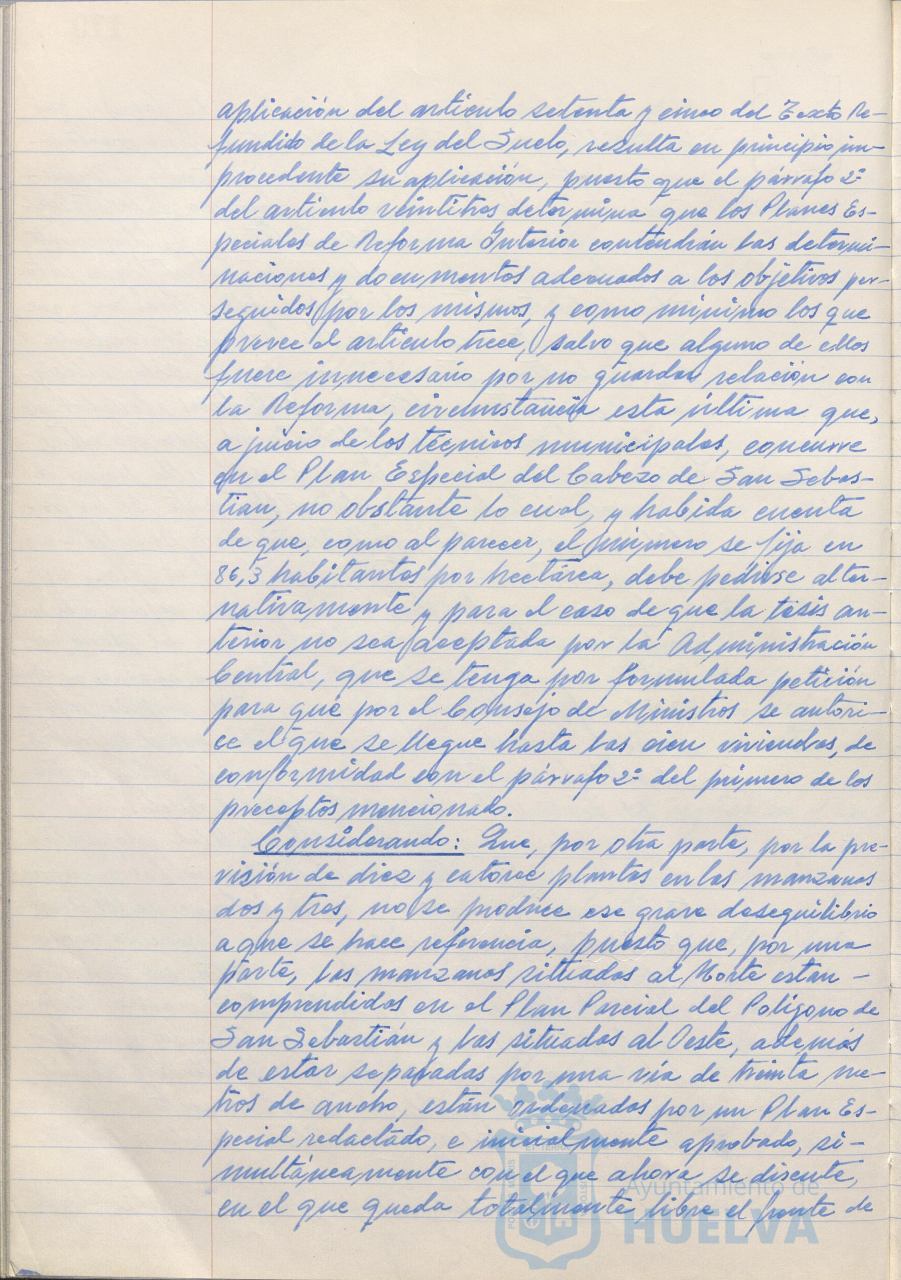 aplicación del artículo setenta y cinco del Texto Re-
fundido de la Ley del Suelo, resulta en principio im-
procedente su aplicación, puesto que el párrafo 2º
del artículo veintitres determina que los Planes Es-
peciales de Reforma Interior contendrán las determi-
naciones y documentos adecuados a los objetivos per-
seguidos por los mismos, y como mínimo los que
prevee el artículo trece, salvo que alguno de ellos
fuere innecesario por no guardar relación con
la Reforma, circunstancia esta última que,
a juicio de los técnicos municipales, concurre
en el Plan Especial del Cabezo de San Sebas-
tian, no obstante lo cual, y habida cuenta
de que, como al parecer, el mínimo se fija en
86,3 habitantes por hectárea, debe pedirse alter-
nativamente y para el caso de que la tesis an-
terior no sea aceptada por la Administración
Central, que se tenga por formulada petición
para que por el Consejo de Ministros se autori-
ce el que se llegue hasta las cien viviendas, de
conformidad con el párrafo 2º del primero de los
preceptos mencionado.
Considerando: Que, por otra parte, por la pre-
visión de diez y catorce plantas en las manzanas
dos y tres, no se produce ese grave desequilibrio
a que se hace referencia, puesto que, por una
parte, las manzanas situadas al Norte estan -
comprendidas en el Plan Parcial del Polígono de
San Sebastián y las situadas al Oeste, además
de estar separadas por una vía de treinta me-
tros de ancho, están ordenadas por un Plan Es-
pecial redactado, e inicialmente aprobado, si-
multáneamente con el que ahora se discute,
en el que queda totalmente libre el frente de
Ayuntamiento de
HUELVA